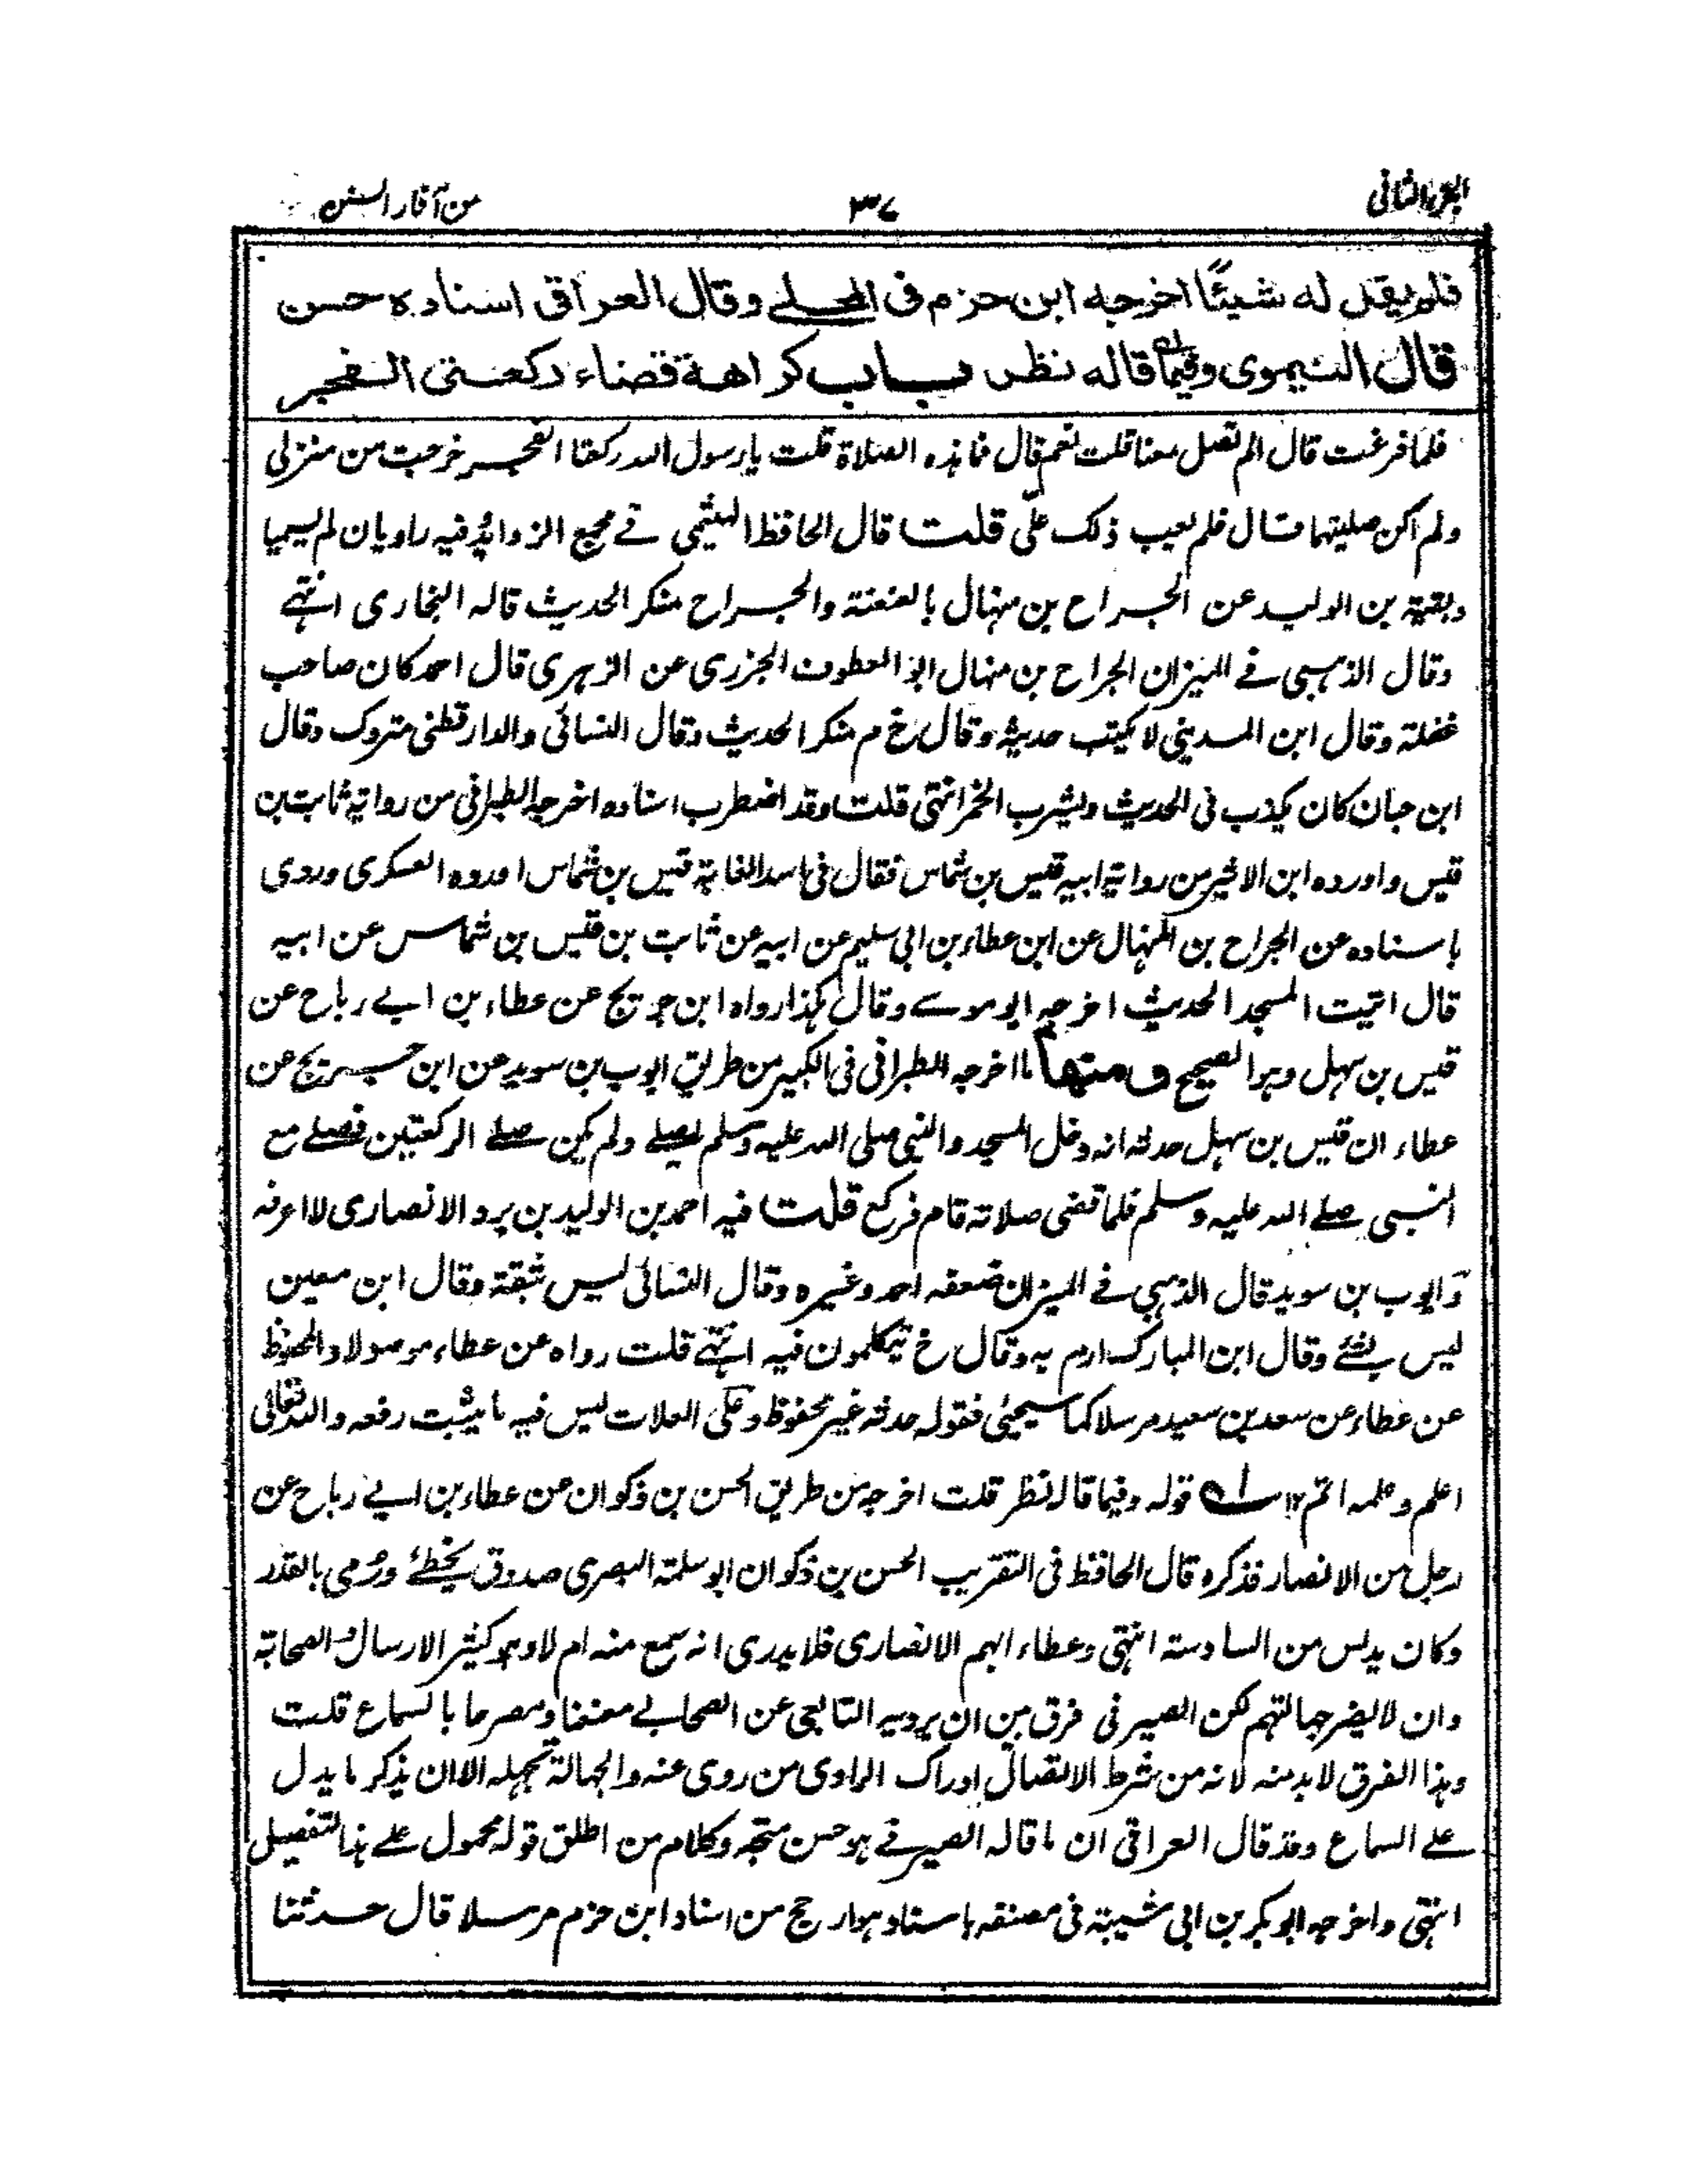 الجزء الثانى ٣٧ من آثار السنن
فلم يقل له شيئًا اخرجه ابن حزم فى المحلے وقال العراقى اسناده حسن
قال النيموى وفيما قاله نظر باب كراهة قضاء ركعتى الفجر
فلما فرغت قال الم تصل معنا قلت نعم قال فما هذه الصلاة قلت يا رسول الله ركعتا الفجر خرجت من منزلى
ولم اكن صليتهما قال فلم يعب ذلك علىّ قلت قال الحافظ الهيثمى فے مجمع الزوائد فيه راويان لم يسميا
وبقية بن الوليد عن الجراح بن منهال بالعنعنة والجراح منكر الحديث قاله البخارى انتهے
وقال الذهبى فے الميزان الجراح بن منهال ابو العطوف الجزرى عن الزهرى قال احمد كان صاحب
غفلة وقال ابن المدينى لا يكتب حديثه وقال خ م منكر الحديث وقال النسائى والدارقطنى متروك وقال
ابن حبان كان يكذب فى الحديث ويشرب الخمر انتهى قلت وقد اضطرب اسناده اخرجه الطبرانى من رواية ثابت بن
قيس واورده ابن الاثير من رواية ابيه قيس بن شماس فقال فى اسد الغابة قيس بن شماس اورده العسكرى وروى
باسناده عن الجراح بن المنهال عن ابن عطاء بن ابى سليم عن ابيه عن ثابت بن قيس بن شماس عن ابيه
قال اتيت المسجد الحديث اخرجه ابو موسے وقال هكذا رواه ابن جريج عن عطاء بن ابے رباح عن
قيس بن سهل وهو الصحيح ومنها ما اخرجه الطبرانى فى الكبير من طريق ايوب بن سويد عن ابن جريج عن
عطاء ان قيس بن سهل حدثه انه دخل المسجد والنبى صلى الله عليه وسلم يصلے ولم يكن صلے الركعتين فصلے مع
النبى صلے الله عليه وسلم فلما قضى صلاته قام فركع قلت فيه احمد بن الوليد بن برد الانصارى لا اعرفه
وايوب بن سويد قال الذهبى فے الميزان ضعفه احمد وغيره وقال النسائى ليس بثقة وقال ابن معين
ليس بشئے وقال ابن المبارك ارم به وقال خ يتكلمون فيه انتهے قلت رواه عن عطاء موصولا والمحفوظ
عن عطاء عن سعد بن سعيد مرسلا كما سيجيئ فقوله حدثه غير محفوظ وعلى العلات ليس فيه ما يثبت رفعه والله تعالى
اعلم وعلمه اتم ١٢ ــه قوله وفيما قاله نظر قلت اخرجه من طريق الحسن بن ذكوان عن عطاء بن ابے رباح عن
رجل من الانصار فذكره قال الحافظ فى التقريب الحسن بن ذكوان ابو سلمة البصرى صدوق يخطئ ورُمى بالقدر
وكان يدلس من السادسة انتهى وعطاء ابهم الانصارى فلا يدرى انه سمع منه ام لا وهو كثير الارسال والصحابة
وان لا يضر جهالتهم لكن الصيرفى فرق بين ان يرويه التابعى عن الصحابے معنعنا ومصرحا بالسماع قلت
وهذا الفرق لا بد منه لانه من شرط الاتصال ادراك الراوى من روى عنه والجهالة تجهله الا ان يذكر ما يدل
علے السماع وقد قال العراقى ان ما قاله الصيرفے هو حسن متجه وكلام من اطلق قوله محمول علے هذا التفصيل
انتهى واخرجه ابو بكر بن ابى شيبة فى مصنفه باسناد هو ارجح من اسناد ابن حزم مرسلا قال حدثنا